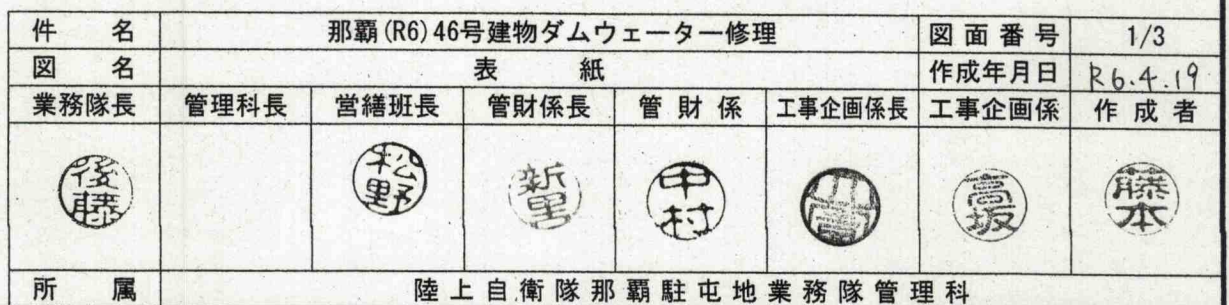 件名 那覇(R6)46号建物ダムウェーター修理 図面番号 1/3
図名 表紙 作成年月日 R6.4.19
業務隊長 管理科長 営繕班長 管財係長 管財係 工事企画係長 工事企画係 作成者
後藤 松野 新里 中村 高坂 藤本
所属 陸上自衛隊那覇駐屯地業務隊管理科